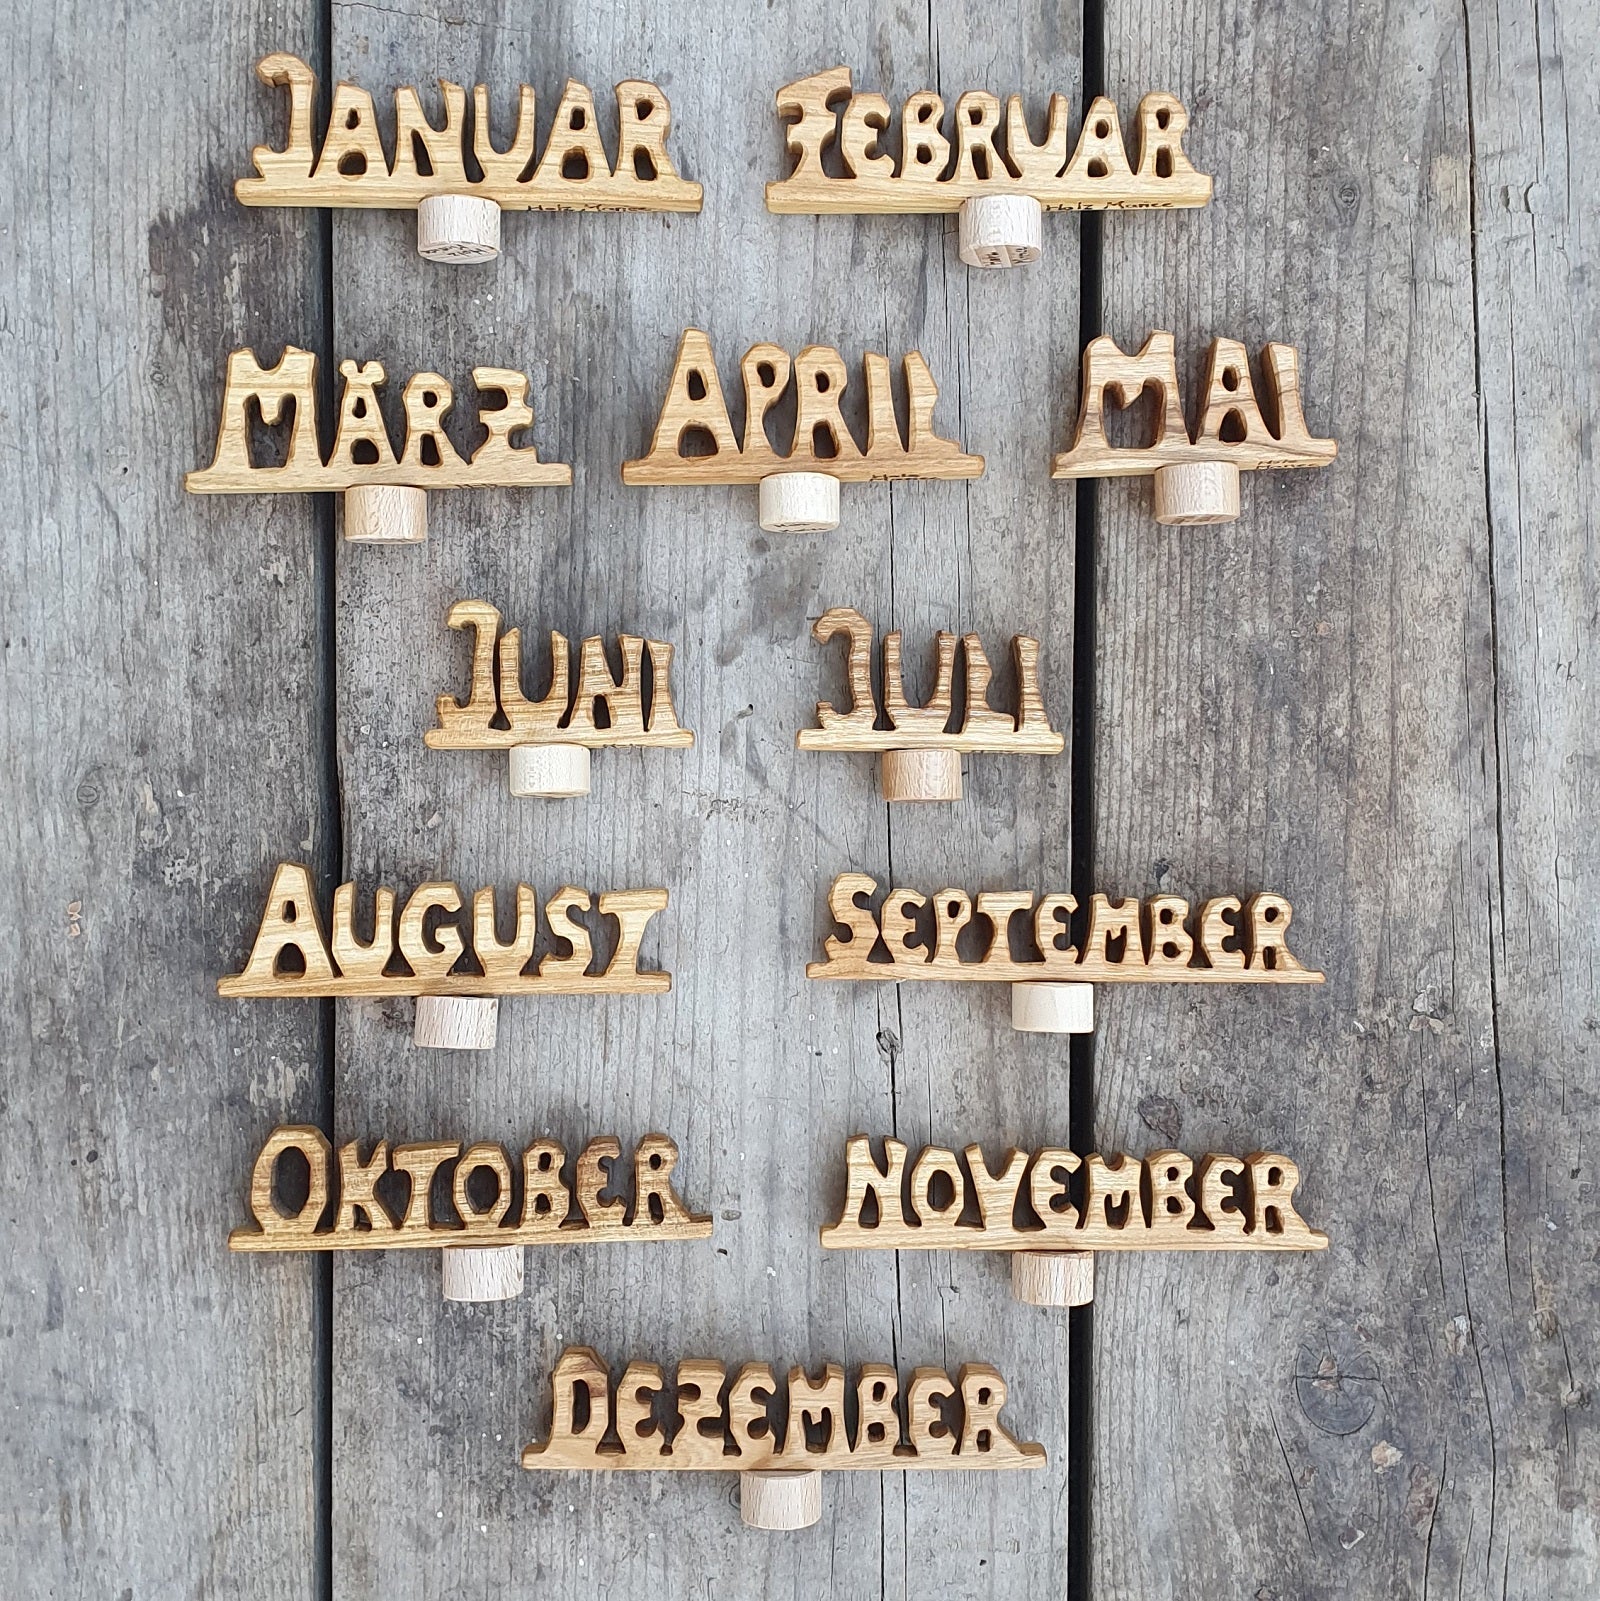 JANUAR FEBRUAR
Holz Manee Holz Manee
MÄRZ APRIL MAI
JUNI JULI
AUGUST SEPTEMBER
OKTOBER NOVEMBER
DEZEMBER